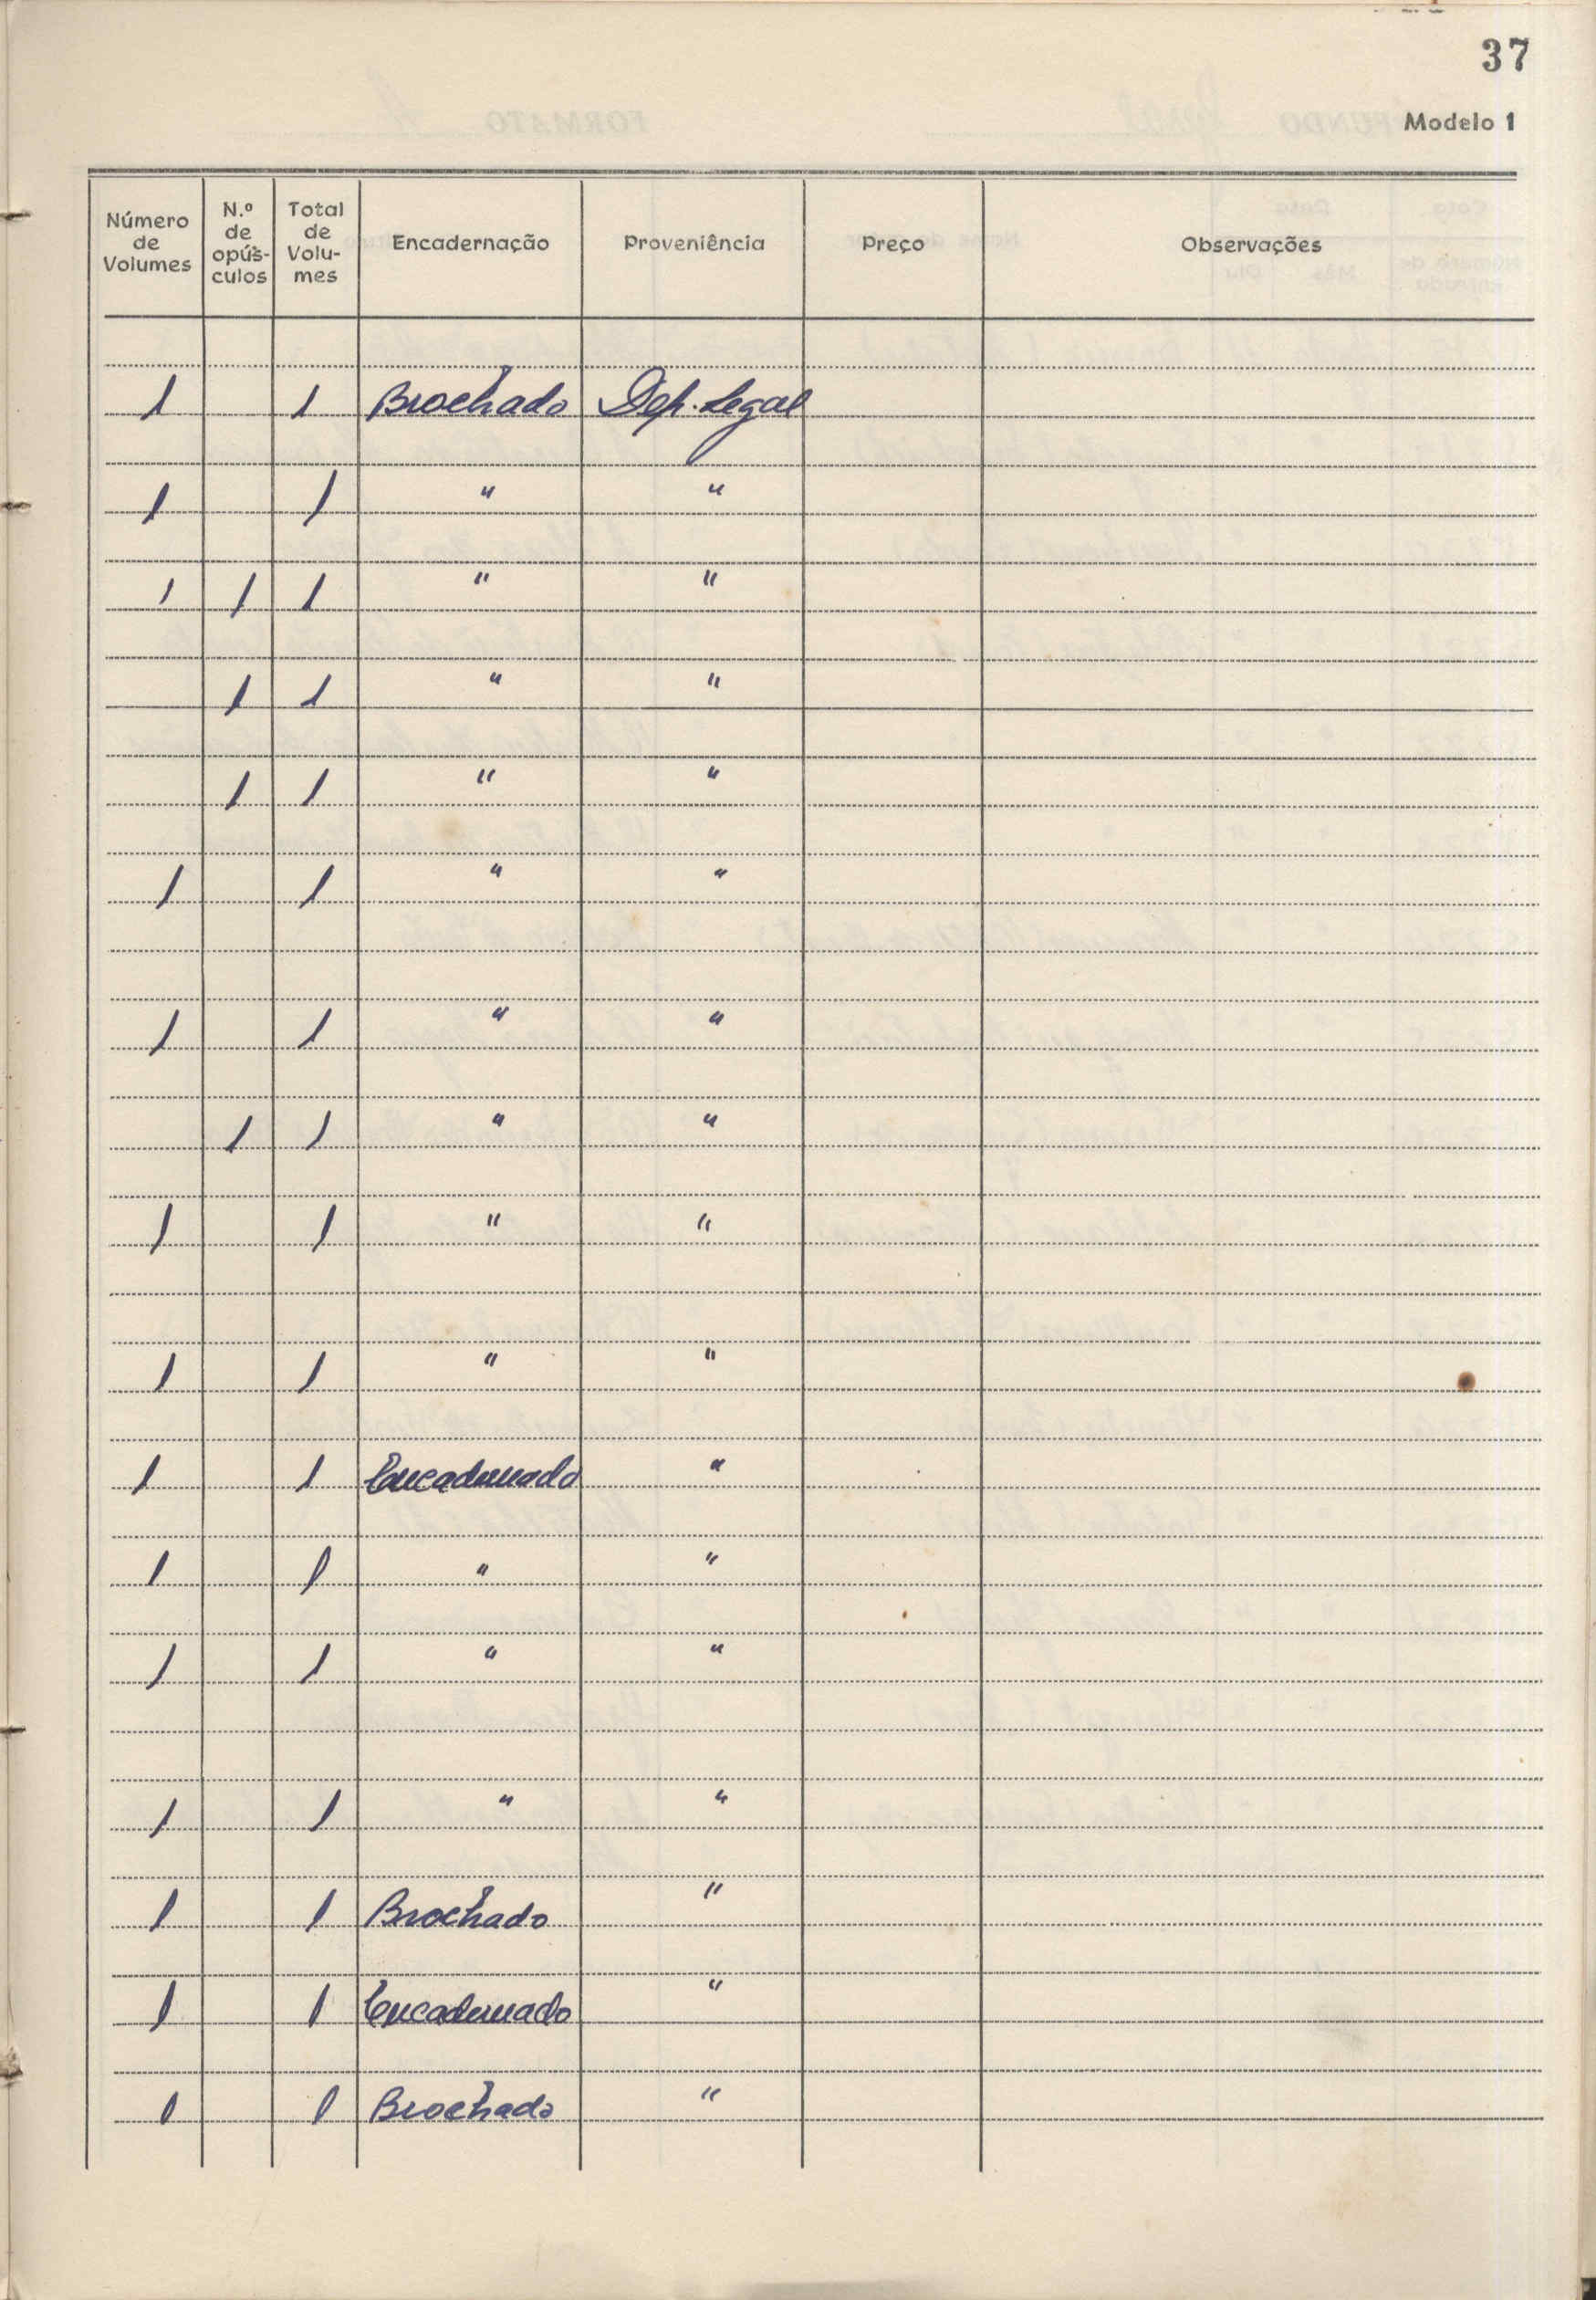 37
Modelo 1
Número de Volumes | N.º de opús-culos | Total de Volu-mes | Encadernação | Proveniência | Preço | Observações
1 | | 1 | Brochado | Dep. Legal
1 | | 1 | " | "
1 | 1 | 1 | " | "
| 1 | 1 | " | "
| 1 | 1 | " | "
1 | | 1 | " | "
1 | | 1 | " | "
| 1 | 1 | " | "
1 | | 1 | " | "
1 | | 1 | " | "
1 | | 1 | Encadernado | "
1 | | 1 | " | "
1 | | 1 | " | "
1 | | 1 | " | "
1 | | 1 | Brochado | "
1 | | 1 | Encadernado | "
1 | | 1 | Brochado | "